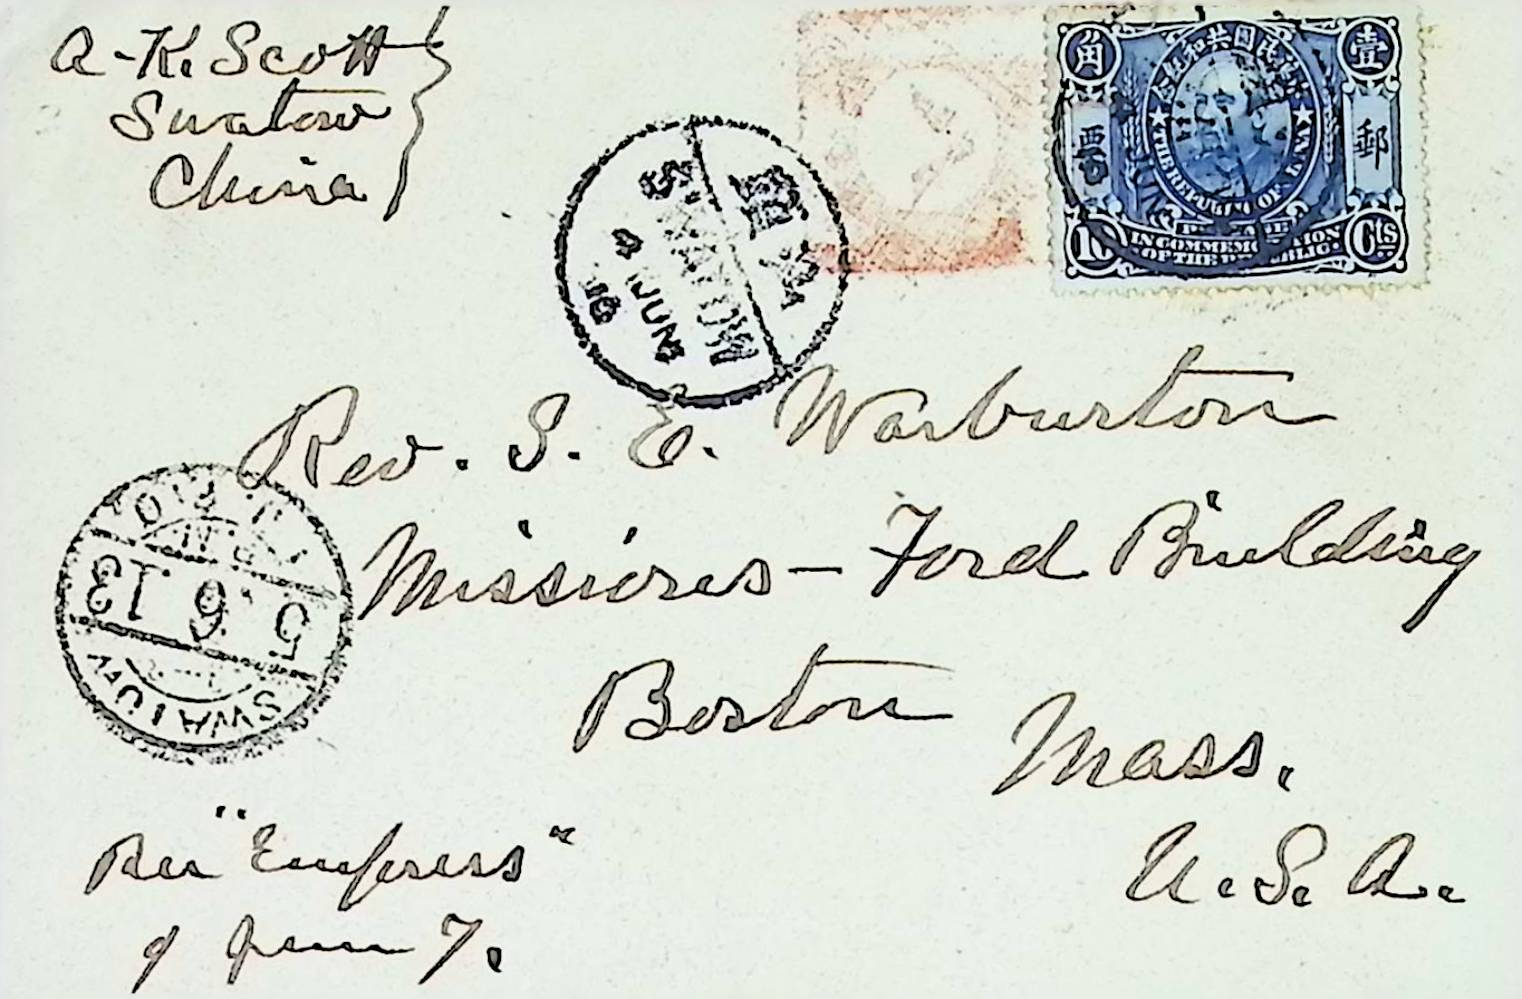 A. K. Scott
Swatow
China
角
壹
中華民國共和紀念
票
郵
THE REPUBLIC OF CHINA
POSTAGE
10
IN COMMEMORATION
OF THE REPUBLIC.
Cts
SWATOW
4 JUN
Rev. S. E. Warburton
Missions - Ford Building
Boston
Mass.
U. S. A.
I.J.P.O.
5.6.13
SWATOW
Per "Empress"
of June 7.